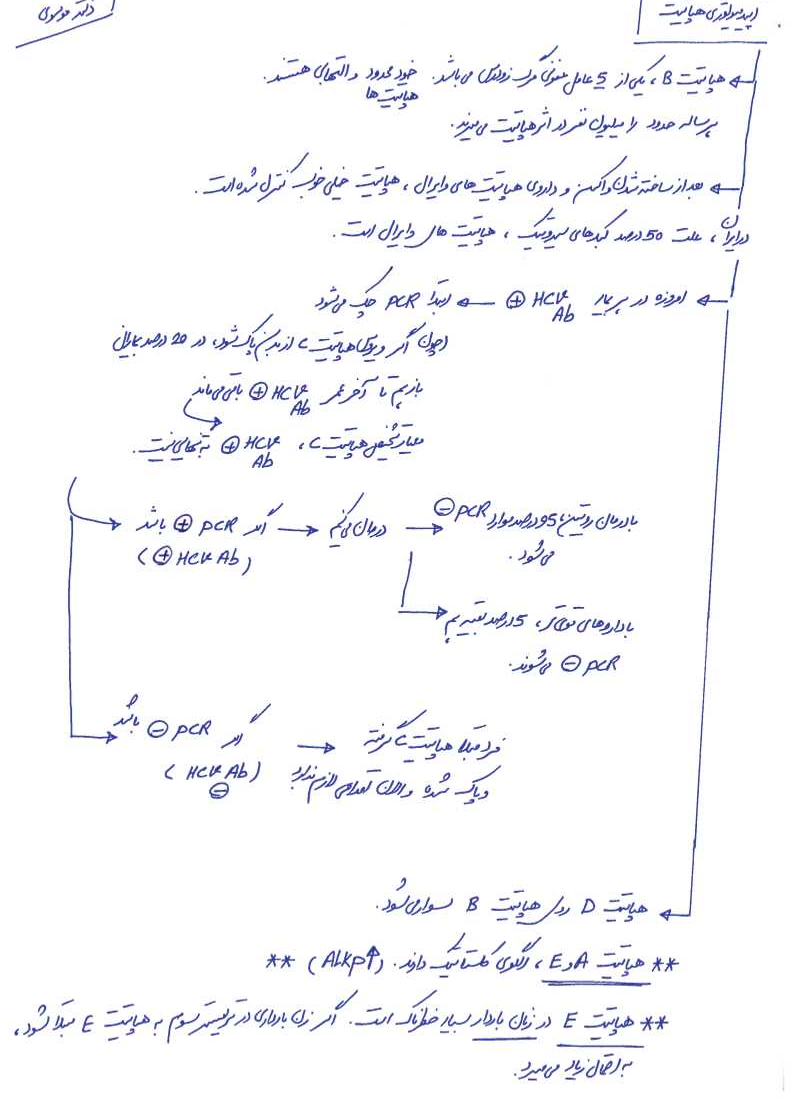 اپیدمیولوژی هپاتیت
دکتر موسوی
هپاتیت B، یکی از 5 عامل عفونی مرگ زودرس می باشد. هپاتیت ها خود محدود و التهابی هستند.
هرساله حدود 1 میلیون نفر در اثر هپاتیت می میرند.
بعد از ساخته شدن واکسن و داروی هپاتیت های وایرال، هپاتیت خیلی خوب کنترل شده است.
در ایران، علت 50 درصد کبدهای سیروتیک، هپاتیت های وایرال است.
امروزه در بیمار HCV Ab ⊕ ← ابتدا PCR چک می شود
(چون اگر ویروس هپاتیت C از بدن پاک شود، در 20 درصد بیماران
بازهم تا آخر عمر HCV Ab ⊕ باقی می ماند
معیار تشخیص هپاتیت C، HCV Ab ⊕ به تنهایی نیست.
اگر PCR ⊕ باشد → درمان می کنیم → با درمان روتین، 95 درصد موارد PCR ⊖ می شود.
(HCV Ab ⊕)
با داروهای قوی تر، 5 درصد بقیه هم
PCR ⊖ می شوند.
اگر PCR ⊖ باشد → فرد قبلا هپاتیت C گرفته
(HCV Ab ⊖) و پاک شده و الان اقدامی لازم ندارد
هپاتیت D روی هپاتیت B سوار می شود.
** هپاتیت A و E، الگوی کلستاتیک دارند. (ALKP↑) **
** هپاتیت E در زنان باردار بسیار خطرناک است. اگر زن بارداری در تریمستر سوم به هپاتیت E مبتلا شود،
به احتمال زیاد می میرد.